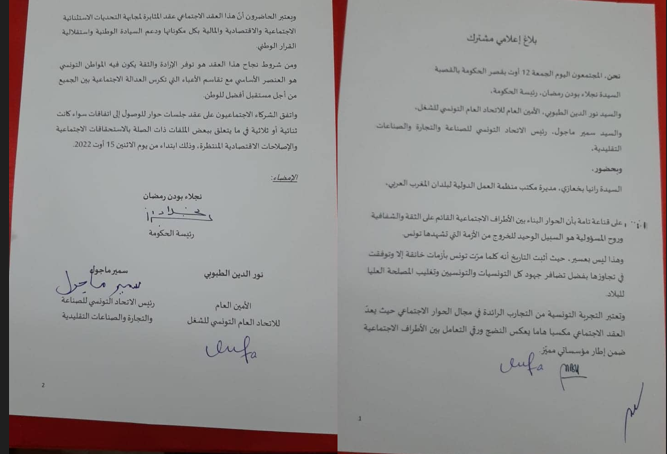 بلاغ إعلامي مشترك
نحن، المجتمعون اليوم الجمعة 12 أوت بقصر الحكومة بالقصبة
السيدة نجلاء بودن رمضان، رئيسة الحكومة،
والسيد نور الدين الطبوبي، الأمين العام للاتحاد العام التونسي للشغل،
والسيد سمير ماجول، رئيس الاتحاد التونسي للصناعة والتجارة والصناعات
التقليدية،
وبحضور،
السيدة رانيا بخعازي، مديرة مكتب منظمة العمل الدولية لبلدان المغرب العربي،
على قناعة تامة بأن الحوار البناء بين الأطراف الاجتماعية القائم على الثقة والشفافية
وروح المسؤولية هو السبيل الوحيد للخروج من الأزمة التي تشهدها تونس
وهذا ليس بعسير، حيث أثبت التاريخ أنه كلما مرّت تونس بأزمات خانقة إلا وتوفقت
في تجاوزها بفضل تضافر جهود كل التونسيات والتونسيين وتغليب المصلحة العليا
للبلاد.
وتعتبر التجربة التونسية من التجارب الرائدة في مجال الحوار الاجتماعي حيث يعدّ
العقد الاجتماعي مكسبا هاما يعكس النضج ورقي التعامل بين الأطراف الاجتماعية
ضمن إطار مؤسساتي مميّز.
1
ويعتبر الحاضرون أنّ هذا العقد الاجتماعي عقد المثابرة لمجابهة التحديات الاستثنائية
الاجتماعية والاقتصادية والمالية بكل مكوناتها ودعم السيادة الوطنية واستقلالية
القرار الوطني.
ومن شروط نجاح هذا العقد هو توفر الإرادة والثقة يكون فيه المواطن التونسي
هو العنصر الأساسي مع تقاسم الأعباء التي تكرس العدالة الاجتماعية بين الجميع
من أجل مستقبل أفضل للوطن.
واتفق الشركاء الاجتماعيون على عقد جلسات حوار للوصول إلى اتفاقات سواء كانت
ثنائية أو ثلاثية في ما يتعلق ببعض الملفات ذات الصلة بالاستحقاقات الاجتماعية
والإصلاحات الاقتصادية المنتظرة، وذلك ابتداء من يوم الاثنين 15 أوت 2022.
الإمضاء:
نجلاء بودن رمضان
رئيسة الحكومة
نور الدين الطبوبي
الأمين العام
للاتحاد العام التونسي للشغل
سمير ماجول
سمير ماجول
رئيس الاتحاد التونسي للصناعة
والتجارة والصناعات التقليدية
2